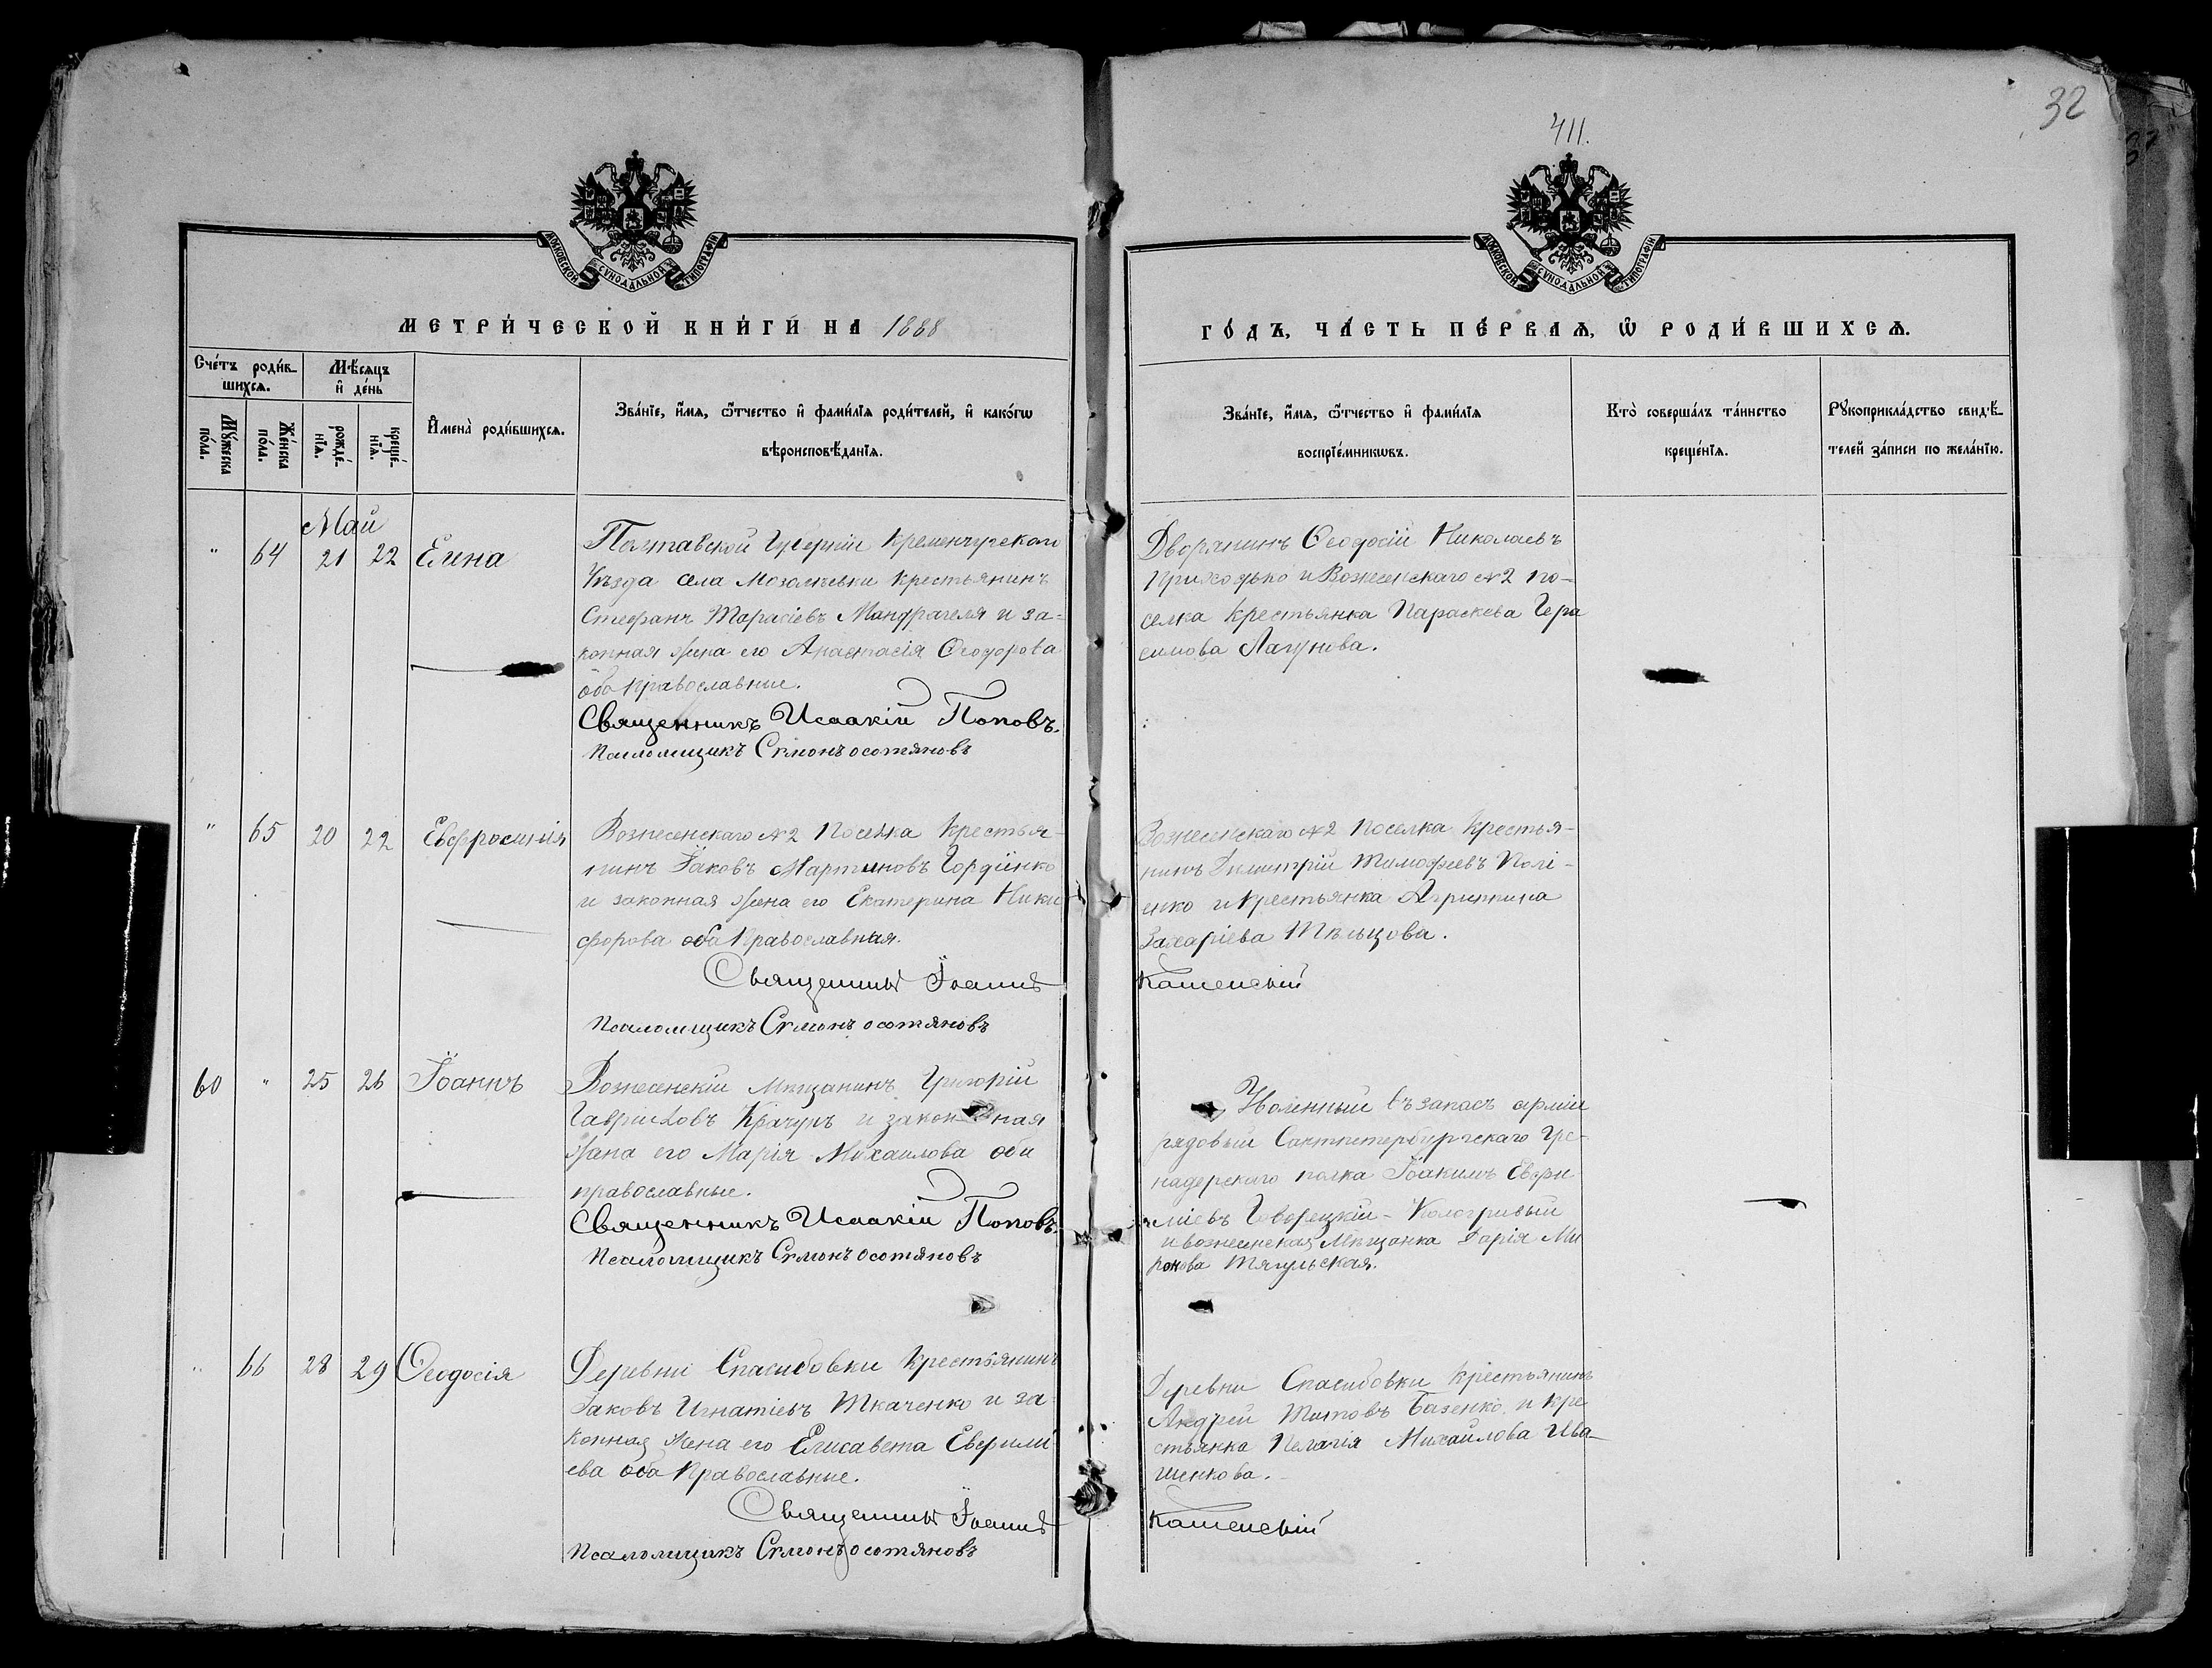 32
411.
МОСКОВСКОЙ СѴНОДАЛЬНОЙ ТИПОГРАФІИ
МОСКОВСКОЙ СѴНОДАЛЬНОЙ ТИПОГРАФІИ
МЕТРИ́ЧЕСКОЙ КНИ́ГИ НА 1888
ГО́ДЪ, ЧА́СТЬ ПЕ́РВАѦ, Ѽ РОДИ́ВШИХСѦ.
Сче́тъ роди́в-
шихсѧ.
Мѣ́сѧцъ
и҆ де́нь
Мꙋ́жеска
по́ла.
Же́нска
по́ла.
рожде́-
нїѧ.
креще́-
нїѧ.
И҆мена̀ роди́вшихсѧ.
Зва́нїе, и҆́мѧ, ѻ҆́тчество и҆ фами́лїѧ роди́телей, и҆ како́гѡ
вѣроисповѣ́данїѧ.
Зва́нїе, и҆́мѧ, ѻ҆́тчество и҆ фами́лїѧ
воспрїе́мникѡвъ.
Кто̀ соверша́лъ та́инство
креще́нїѧ.
Рꙋкоприкла́дство свидѣ́-
телей за́писи по жела́нїю.
Май
" 64 21 22 Елена
Полтавской Губерніи Кременчугскаго
Уѣзда села Мозолѣевки крестьянинъ
Стефанъ Тарасіевъ Мандрагеля и за-
конная жена его Анастасія Ѳеодорова
оба православные.
Священникъ Исаакій Поповъ.
Псаломщикъ Симонъ
Дворянинъ Ѳеодосій Николаевъ
Приходько и Вознесенскаго №2 по-
селка крестьянка Параскева Гера
симова Лагунова.
" 65 20 22 Евфросинія
Вознесенскаго №2 поселка крестья-
нинъ Іаковъ Мартиновъ Гордіенко
и законная жена его Екатерина Ники
форова оба православная.
Священникъ Іоаннъ
Псаломщикъ Симонъ
Вознесенскаго №2 поселка крестья-
нинъ Димитрій Тимофеевъ
енко и крестьянка Агриппина
Захаріева
Каменскій
60 " 25 26 Іоаннъ
Вознесенскій мѣщанинъ Григорій
Гавриловъ Крачунъ и законная
жена его Марія Михаилова оби
православные.
Священникъ Исаакій Поповъ.
Псаломщикъ Симонъ
Уволенный въ запасъ арміи
рядовый Санктпетербургскаго Гре-
надерскаго полка Іоакимъ Евфи
міевъ
и вознесенская мѣщанка Дарія Ми
ронова Тягульская.
" 66 28 29 Ѳеодосія
Деревни Спасибовки крестьянинъ
Іаковъ Игнатіевъ Ткаченко и за
конная жена его Елисавета Евфимі
ева оба православные.
Священникъ Іоаннъ
Псаломщикъ Симонъ
Деревни Спасибовки крестьянинъ
Андрей Титовъ Базенко и кре
стьянка Пелагія Михайлова Ива-
шенкова.
Каменскій